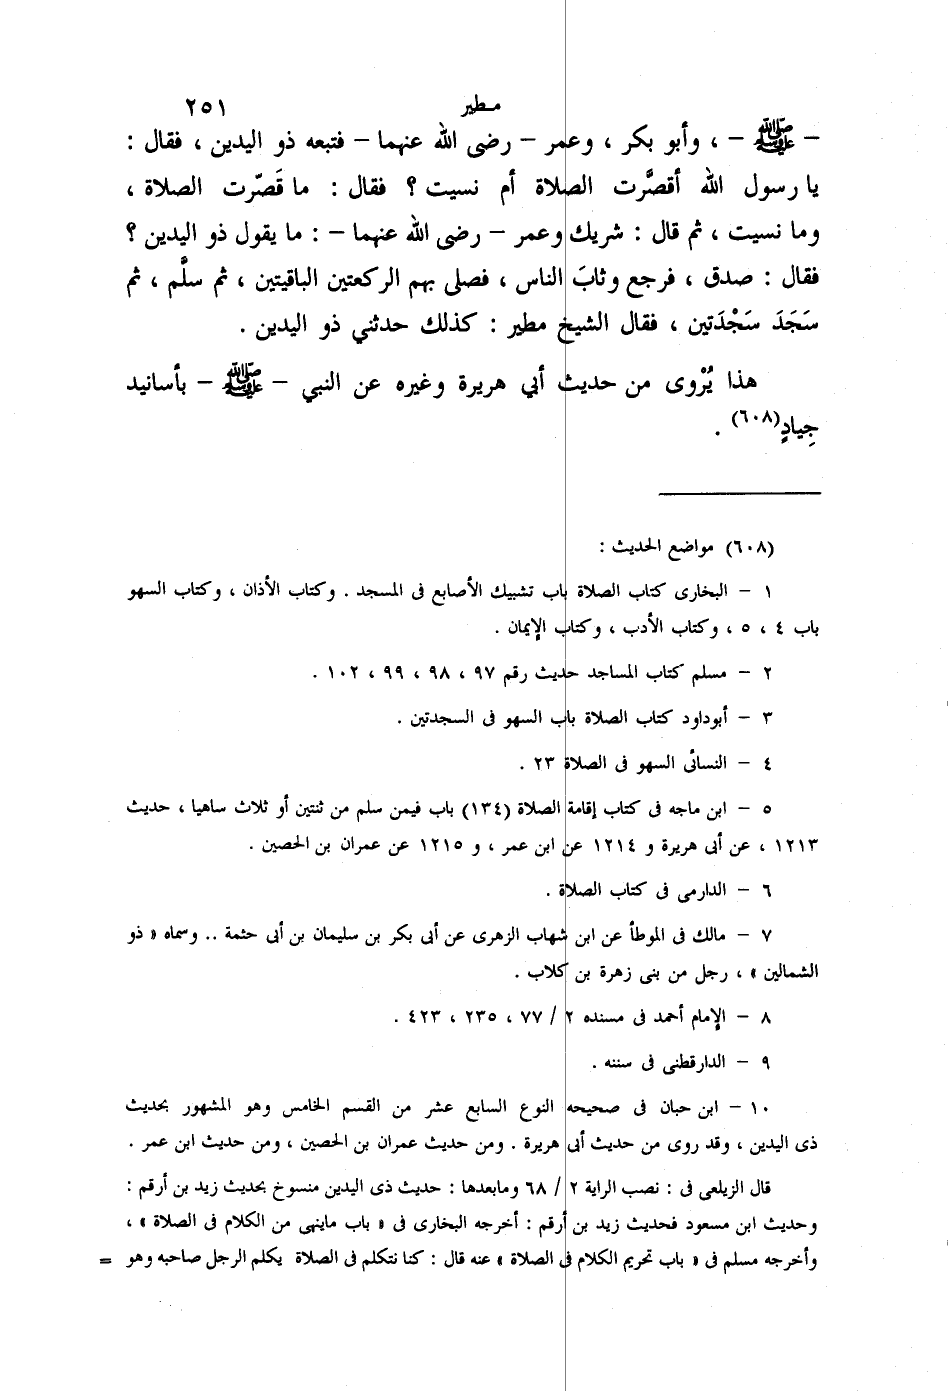 مطير ٢٥١
– ﷺ – ، وأبو بكر ، وعمر – رضى الله عنهما – فتبعه ذو اليدين ، فقال :
يا رسول الله أقصَّرت الصلاة أم نسيت ؟ فقال : ما قَصّرت الصلاة ،
وما نسيت ، ثم قال : شريك وعمر – رضى الله عنهما – : ما يقول ذو اليدين ؟
فقال : صدق ، فرجع وثابَ الناس ، فصلى بهم الركعتين الباقيتين ، ثم سلَّم ، ثم
سَجَدَ سَجْدَتين ، فقال الشيخ مطير : كذلك حدثني ذو اليدين .
هذا يُرْوى من حديث أبي هريرة وغيره عن النبي – ﷺ – بأسانيد
جِيادٍ(٦٠٨) .
(٦٠٨) مواضع الحديث :
١ – البخارى كتاب الصلاة باب تشبيك الأصابع فى المسجد . وكتاب الأذان ، وكتاب السهو
باب ٤ ، ٥ ، وكتاب الأدب ، وكتاب الإيمان .
٢ – مسلم كتاب المساجد حديث رقم ٩٧ ، ٩٨ ، ٩٩ ، ١٠٢ .
٣ – أبوداود كتاب الصلاة باب السهو فى السجدتين .
٤ – النسائى السهو فى الصلاة ٢٣ .
٥ – ابن ماجه فى كتاب إقامة الصلاة (١٣٤) باب فيمن سلم من ثنتين أو ثلاث ساهيا ، حديث
١٢١٣ ، عن أبى هريرة و ١٢١٤ عن ابن عمر ، و ١٢١٥ عن عمران بن الحصين .
٦ – الدارمى فى كتاب الصلاة .
٧ – مالك فى الموطأ عن ابن شهاب الزهرى عن أبى بكر بن سليمان بن أبى حثمة .. وسماه « ذو
الشمالين » ، رجل من بنى زهرة بن كلاب .
٨ – الإمام أحمد فى مسنده ٢ / ٧٧ ، ٢٣٥ ، ٤٢٣ .
٩ – الدارقطنى فى سننه .
١٠ – ابن حبان فى صحيحه النوع السابع عشر من القسم الخامس وهو المشهور بحديث
ذى اليدين ، وقد روى من حديث أبى هريرة . ومن حديث عمران بن الحصين ، ومن حديث ابن عمر .
قال الزيلعى فى : نصب الراية ٢ / ٦٨ ومابعدها : حديث ذى اليدين منسوخ بحديث زيد بن أرقم :
وحديث ابن مسعود فحديث زيد بن أرقم : أخرجه البخارى فى « باب ماينهى من الكلام فى الصلاة » ،
وأخرجه مسلم فى « باب تحريم الكلام فى الصلاة » عنه قال : كنا نتكلم فى الصلاة يكلم الرجل صاحبه وهو =